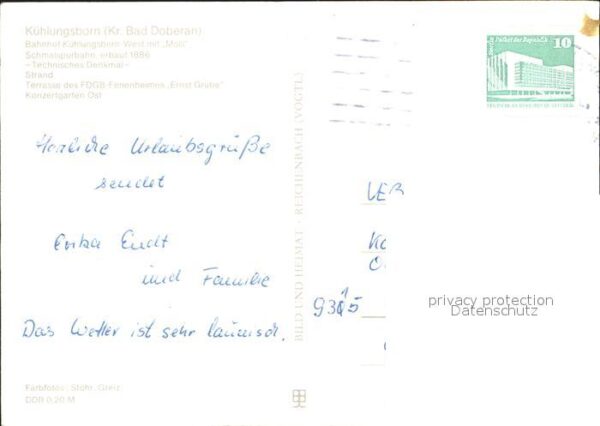 Kühlungsborn (Kr. Bad Doberan)
Bahnhof Kühlungsborn-West mit „Molli"
Schmalspurbahn, erbaut 1886
– Technisches Denkmal –
Strand
Terrasse des FDGB-Ferienheimes „Ernst Grube"
Konzertgarten Ost
Herzliche Urlaubsgrüße
sendet
Erika Endt
und Familie
Das Wetter ist sehr launisch.
Farbfotos: Stöhr, Greiz
DDR 0,20 M
BILD UND HEIMAT · REICHENBACH (VOGTL)
Palast der Republik
10
9315
privacy protection
Datenschutz